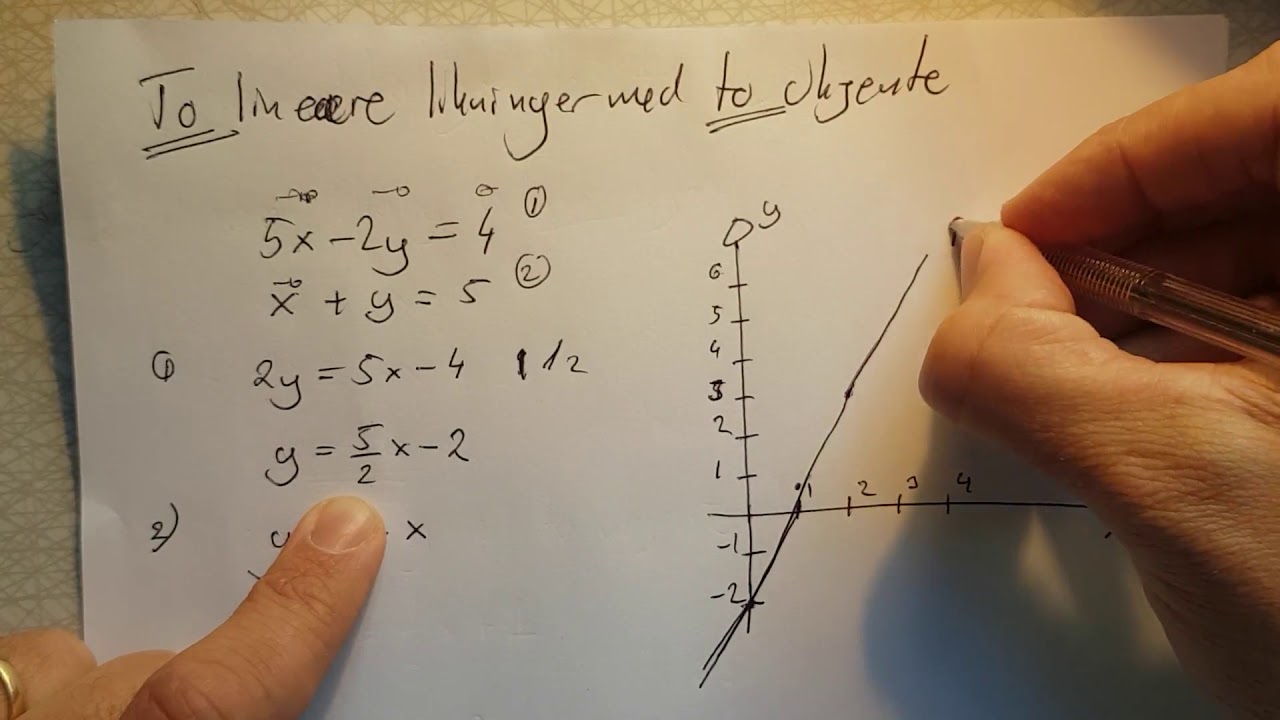 To lineære likninger med to ukjente
5x - 2y = 4 ①
x + y = 5 ②
① 2y = 5x - 4 | 1/2
y = 5/2 x - 2
2) x
y
6
5
4
3
2
1
1 2 3 4
-1
-2